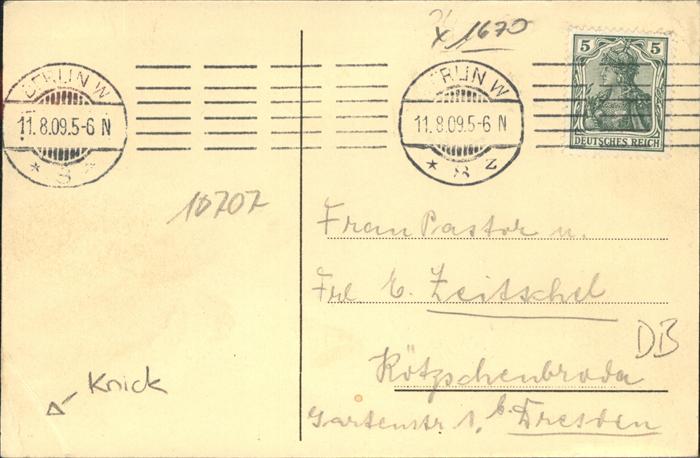 x 1670
BERLIN W
11.8.09.5-6 N
* 8 z
BERLIN W
11.8.09.5-6 N
* 8 z
5 5
DEUTSCHES REICH
10707
Frau Pastor u.
Frl. E. Zeitschel
DB
Kötzschenbroda
Gartenstr 1, b. Dresden
Knick